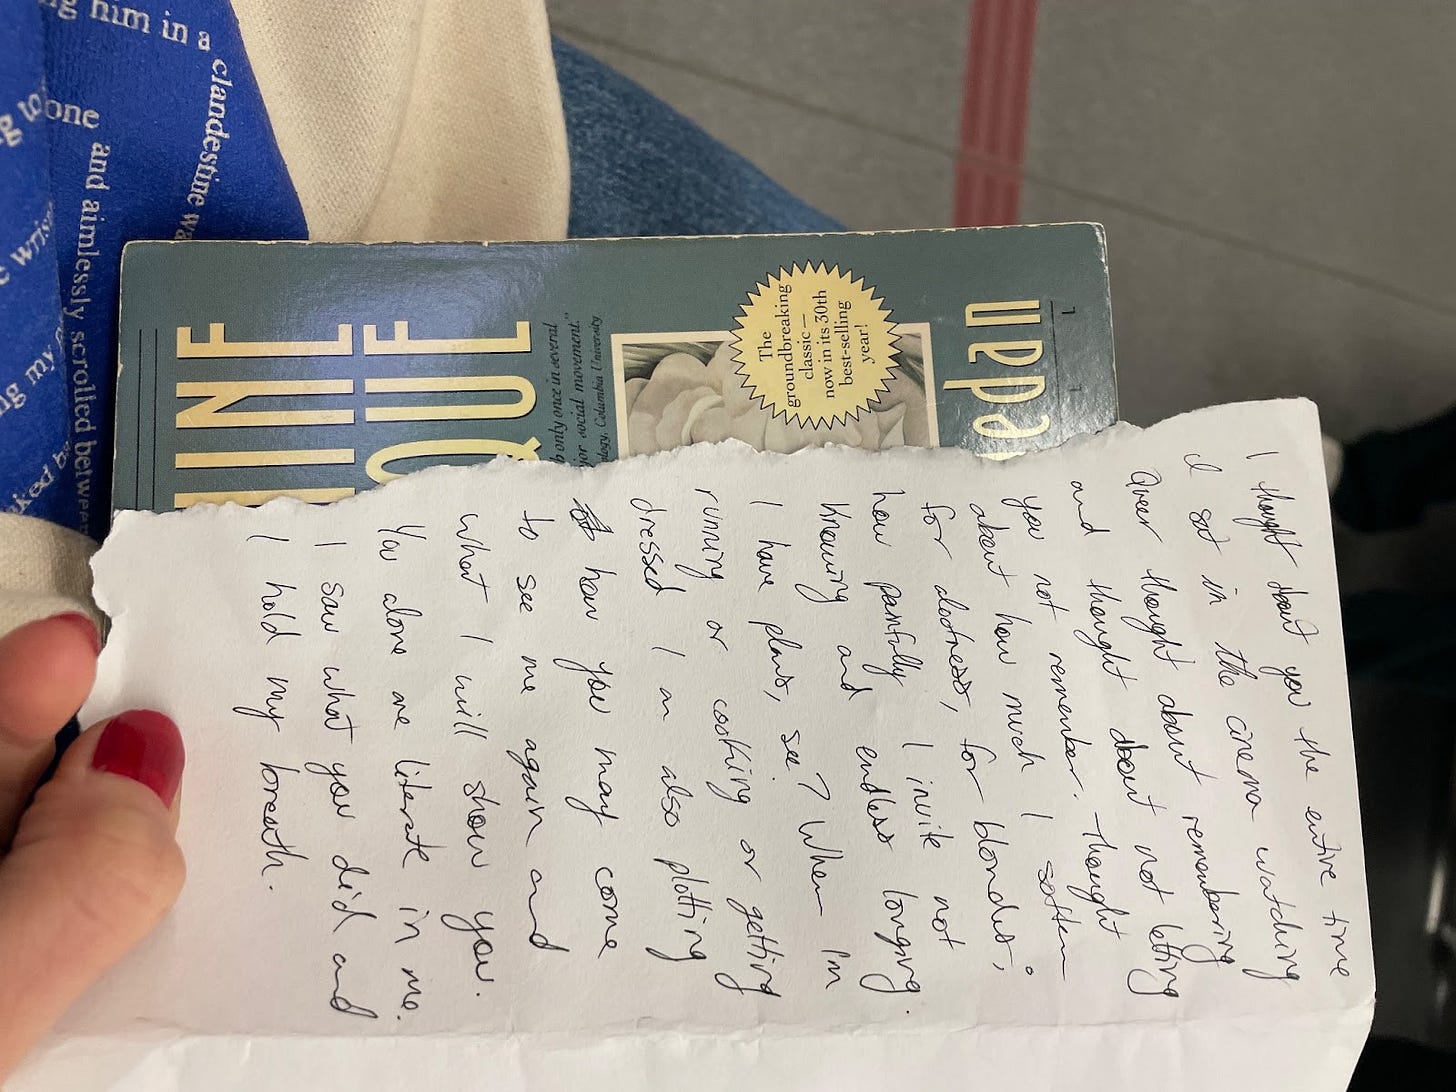 him in a
clandestine
one
and aimlessly scrolled between
my
INE
QUE
only once in several
social movement."
Columbia University
The
groundbreaking
classic —
now in its 30th
best-selling
year!
edan
I thought about you the entire time
I sat in the cinema watching
Queer thought about remembering
and thought about not letting
you not remember. Thought
about how much I soften
for aloofness, for blondes;
how painfully I invite not
knowing and endless longing.
I have plans, see? When I'm
running or cooking or getting
dressed I am also plotting
how you may come
to see me again and
what I will show you.
You alone are literate in me.
I saw what you did and
I hold my breath.